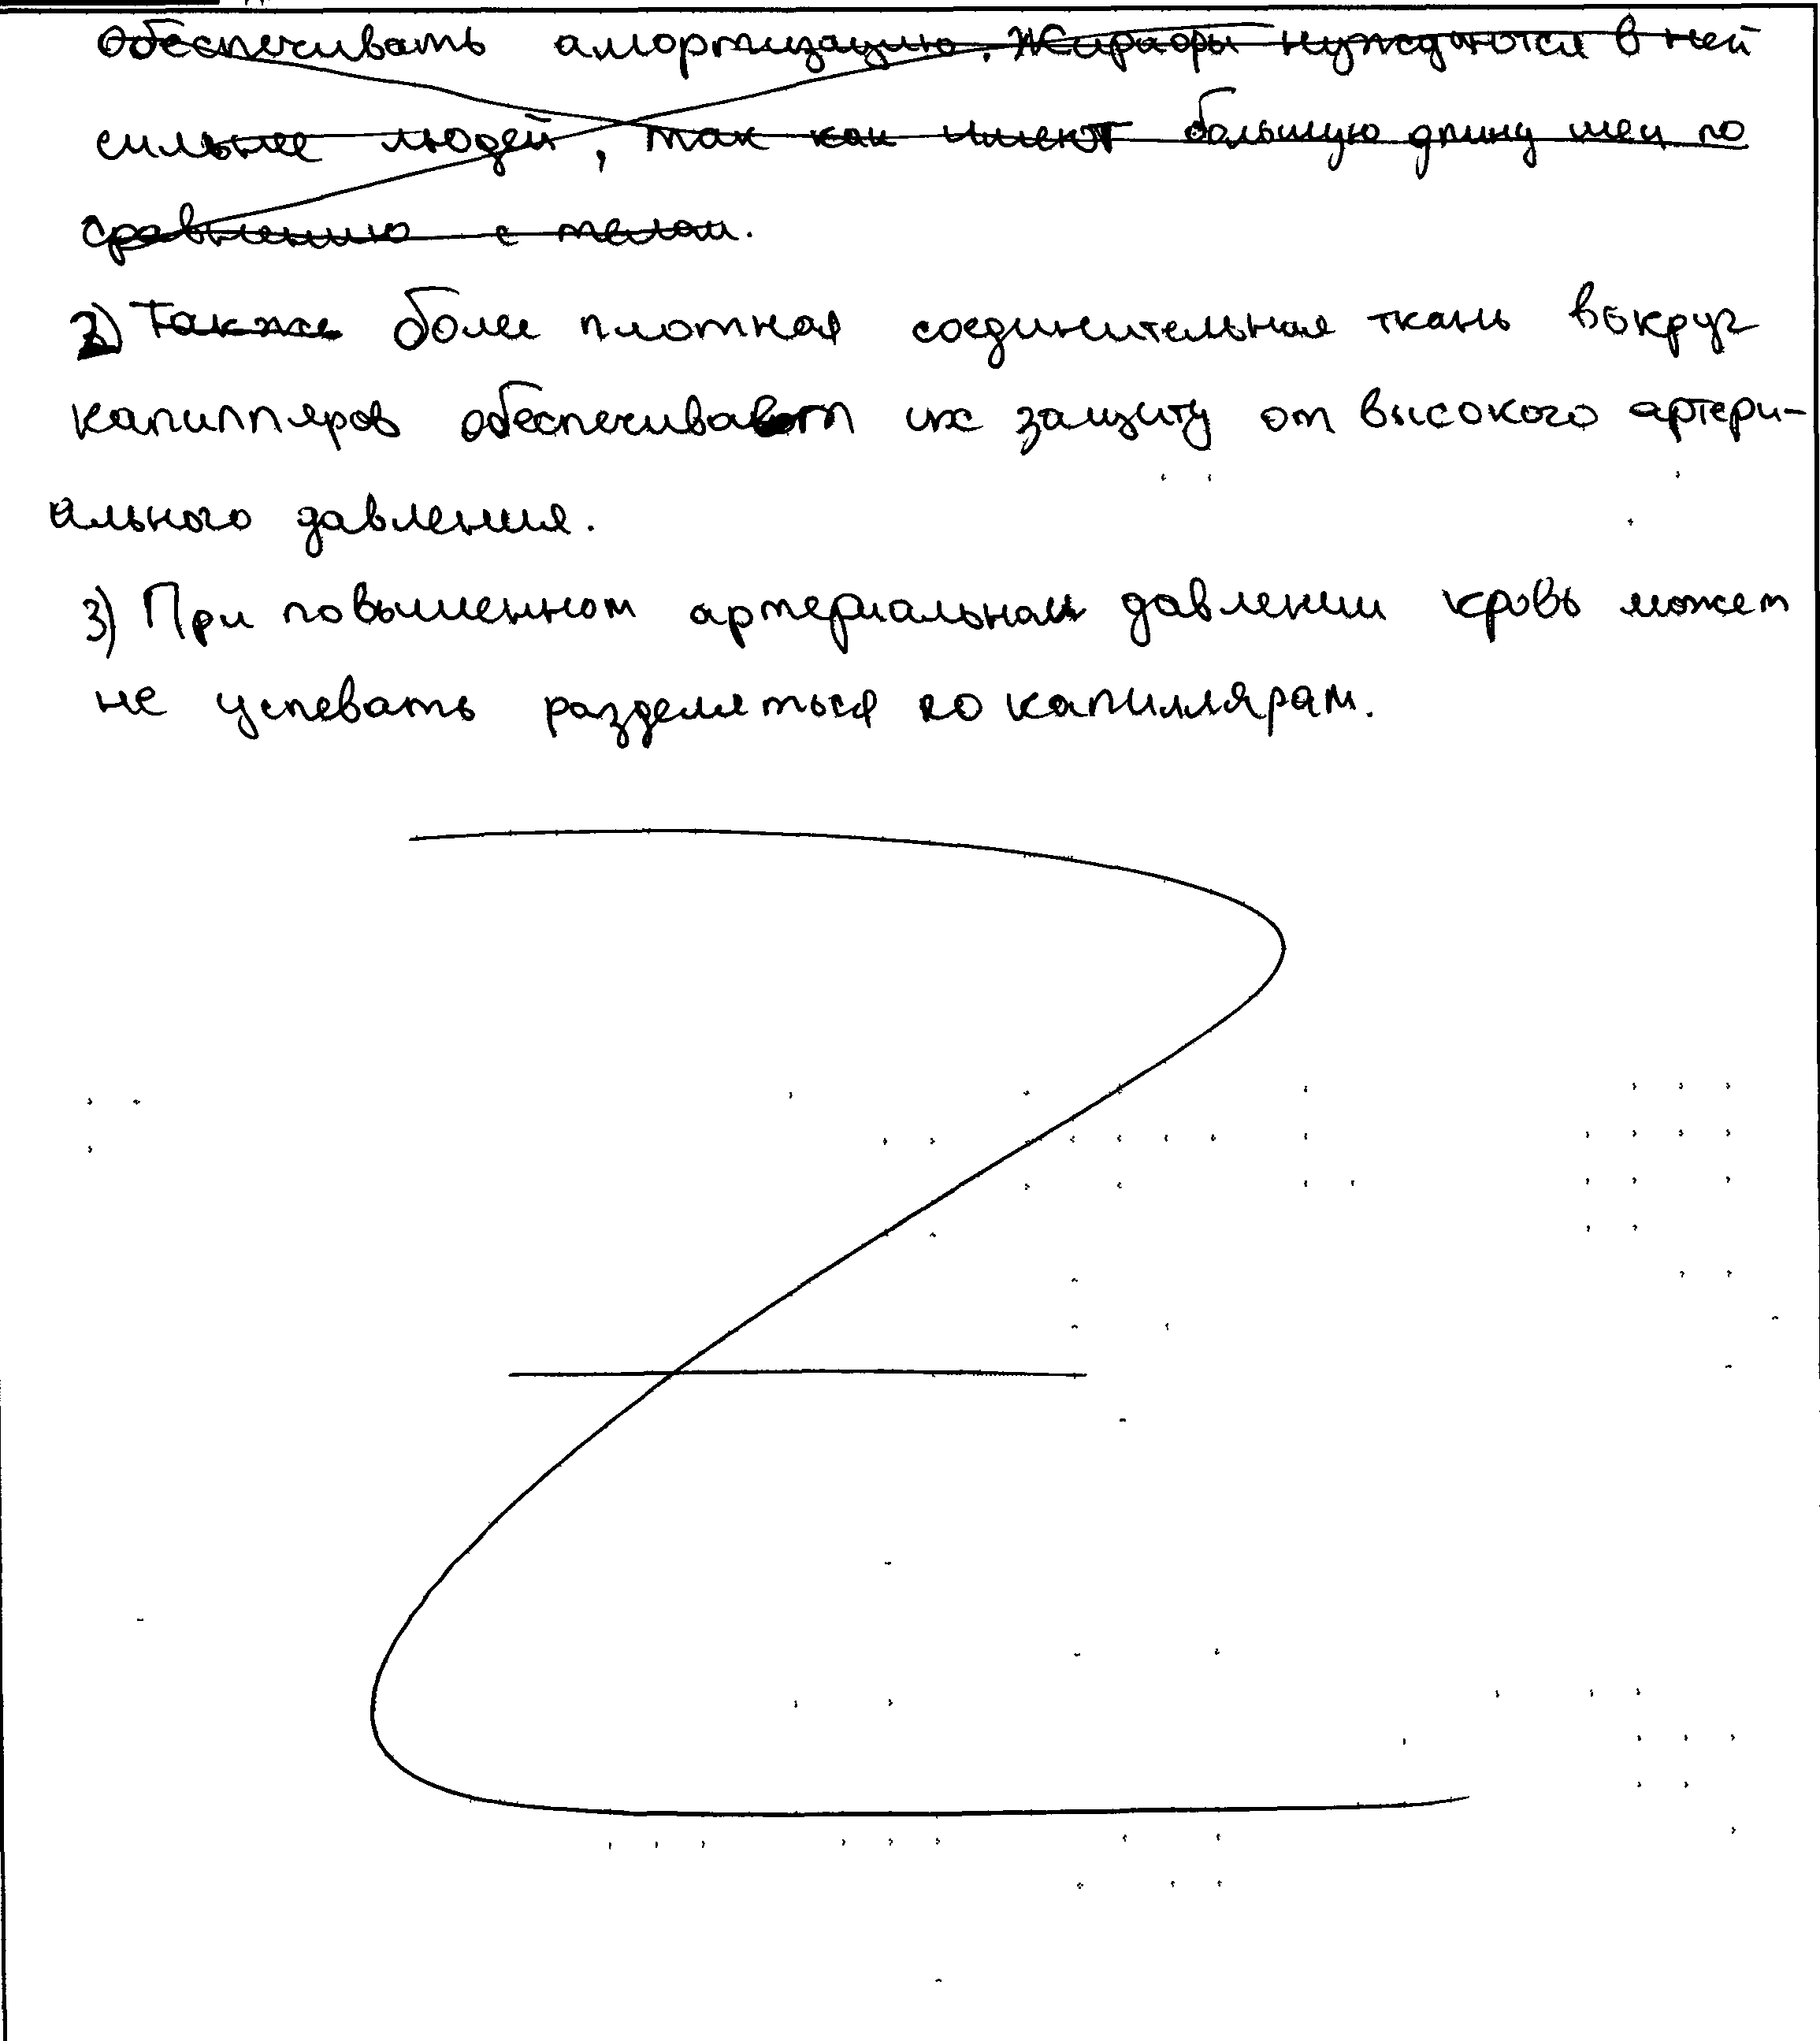 обеспечивать амортизацию. Жирафы нуждаются в ней
сильнее людей, так как имеют большую длину шеи по
сравнению с телом.
2) Также более плотная соединительная ткань вокруг
капилляров обеспечивает их защиту от высокого артери-
ального давления.
3) При повышенном артериальном давлении кровь может
не успевать разделяться по капиллярам.